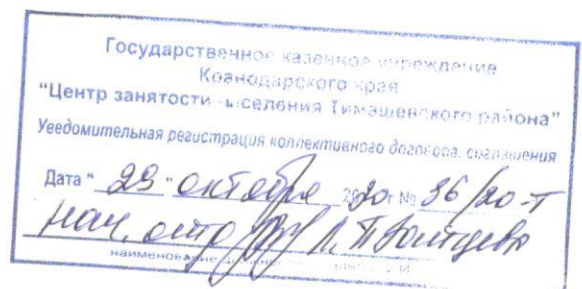 Государственное казенное учреждение
Краснодарского края
"Центр занятости населения Тимашевского района"
Уведомительная регистрация коллективного договора, соглашения
Дата " октября 2020 г. № 36/20-т
нач. отд
наименование